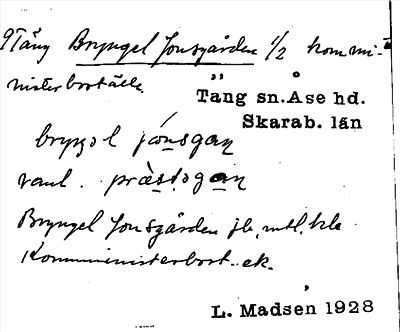 9 Täng Bryngel Jonsgården 1/2 kommi-
nisterboställe
Täng sn. Åse hd.
Skarab. län
bryŋəl jónsgaɳ
vanl. præstsgaɳ
Bryngel Jonsgården jb, mtl, kla
Kommministerbost. ek.
L. Madsen 1928